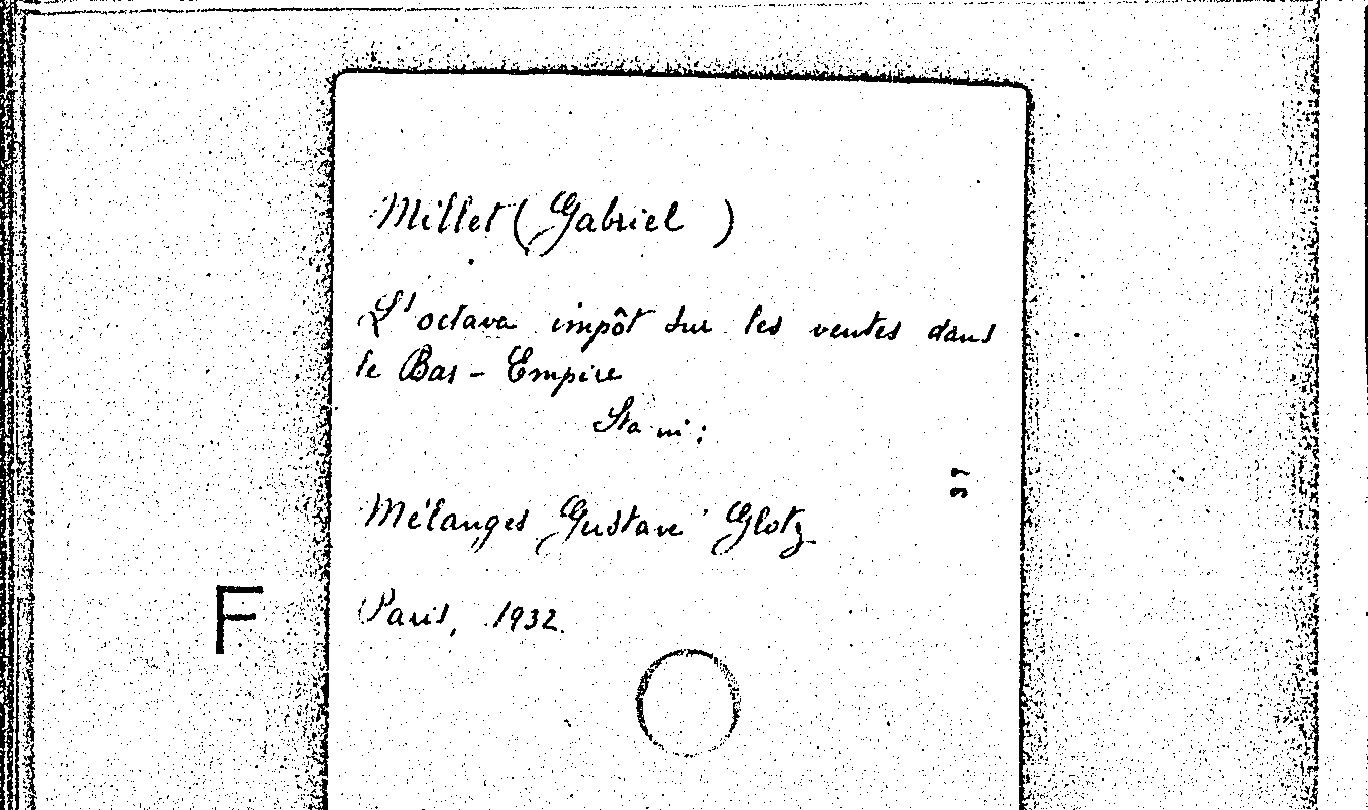 Millet (Gabriel )
L'octava impôt sur les ventes dans
le Bas - Empire
Sta in :
Mélanges Gustave Glotz
F
Paris, 1932.